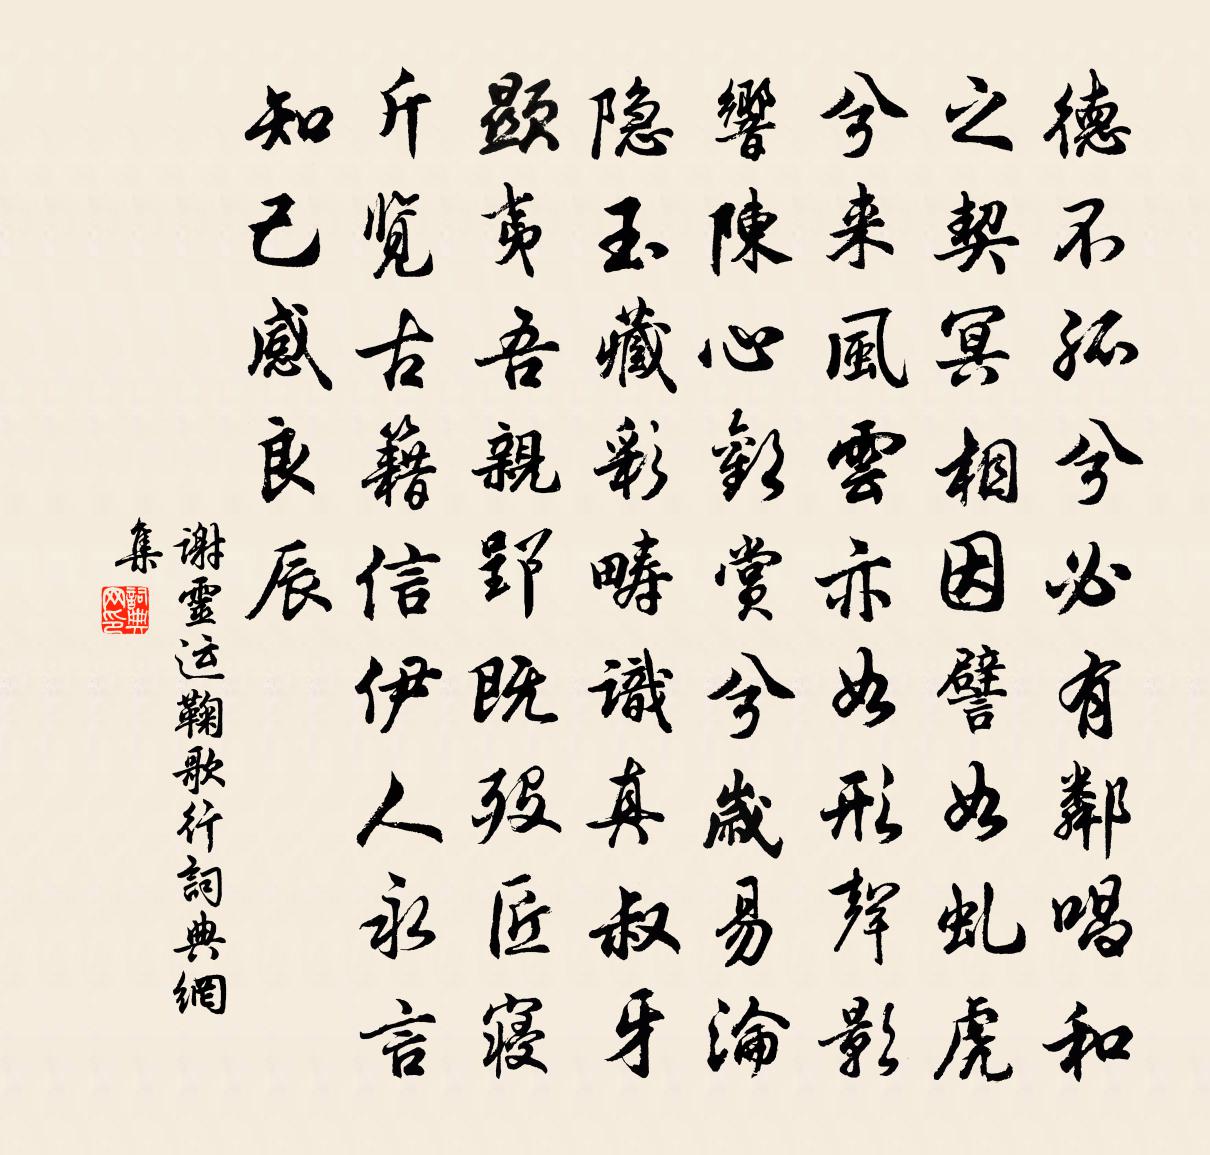 德不孤兮必有鄰唱和
之契冥相因譬如虬虎
兮来風雲亦如形聲影
響陳心歡賞兮歲易淪
隐玉藏彩疇識真叔牙
顯夷吾親郢既殁匠寝
斤覽古籍信伊人永言
知己感良辰
謝靈运鞠歌行詞典網
集
詞典
网印